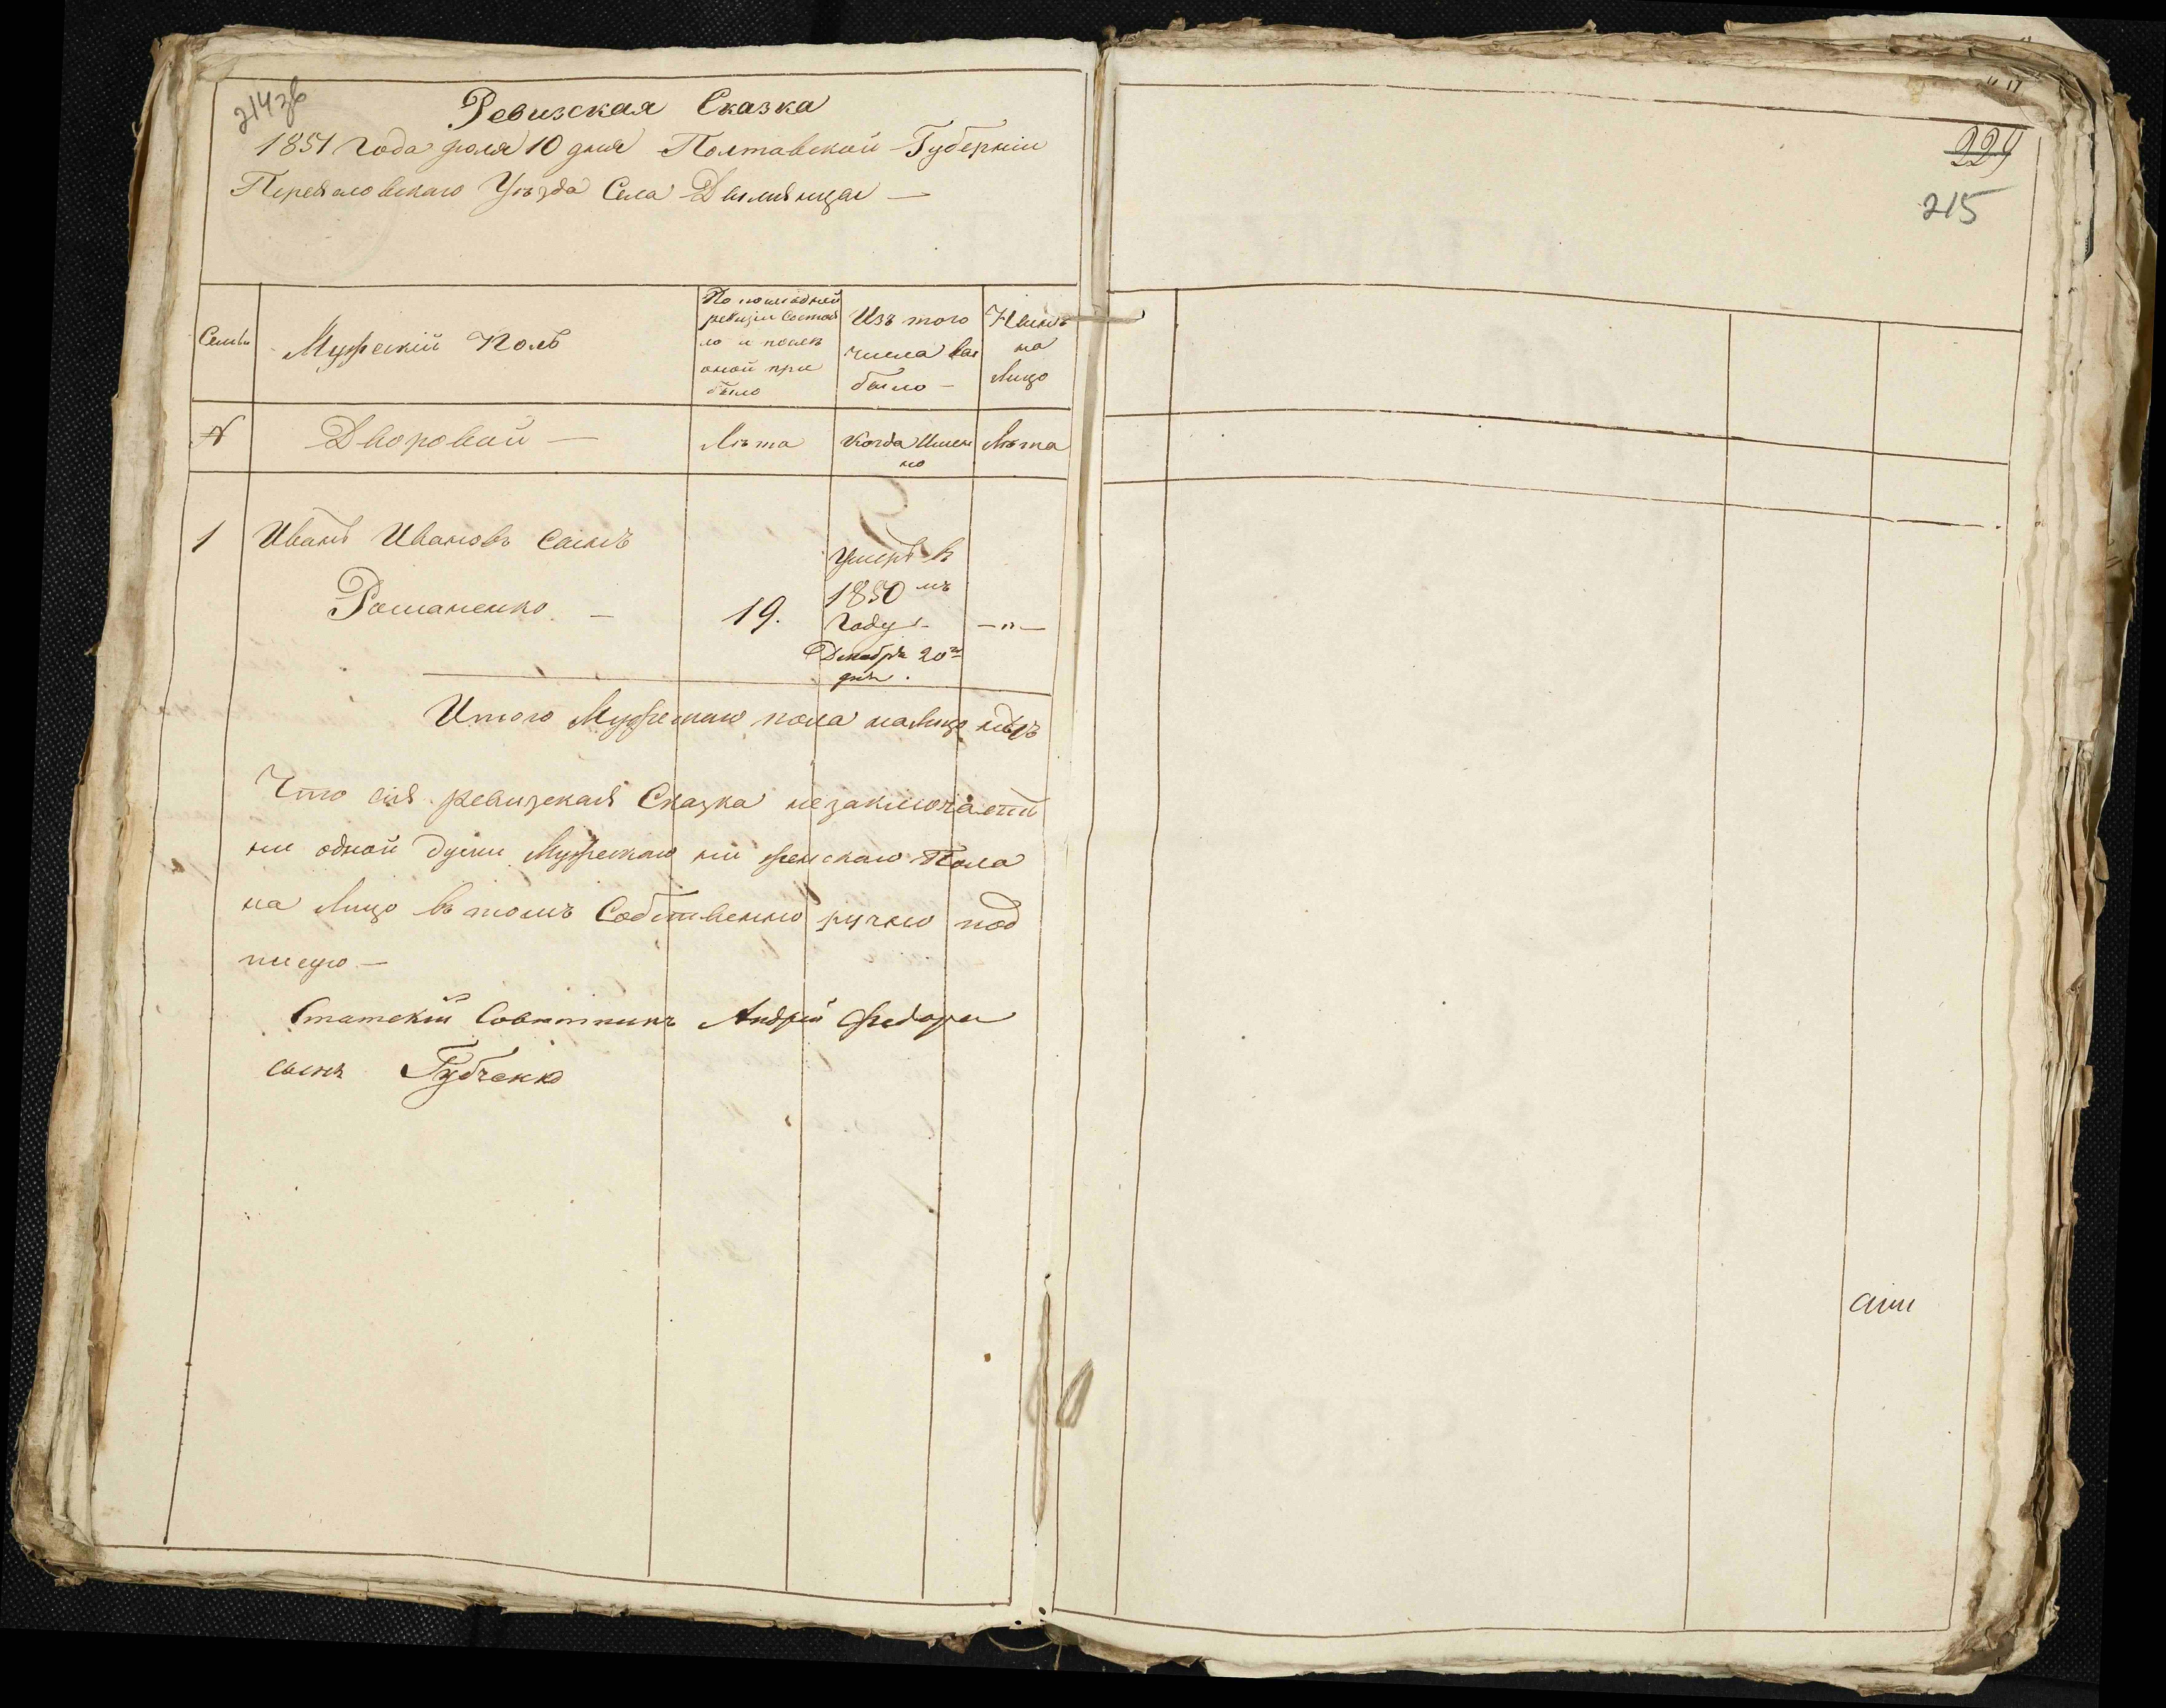 214зв
Ревизская Сказка
1851 Года Июля 10 дня Полтавской Губерніи
Переяловскаго Уѣзда Села
Семьи
Мужескій Полъ
По последней
ревизіи состоя
ло и послѣ
оной при
было
Изъ того
числа вы
было —
Нынѣ
на
Лицо
№
Дворовой —
Лѣта
Когда Имен
но
Лѣта
1
Иванъ Ивановъ Сынъ
Романенко —
19.
Умеръ въ
1850 мъ
Году
Декабря 20го
дня.
—"—
Итого Мужескаго пола на Лицо нѣтъ
Что сія ревизская Сказка незаключаетъ
ни одной души Мужескаго ни женскаго Пола
на Лицо въ томъ Собственно ручно под
писую —
Статскій Советникъ Андрей Федора
сынъ Губченко
229
215